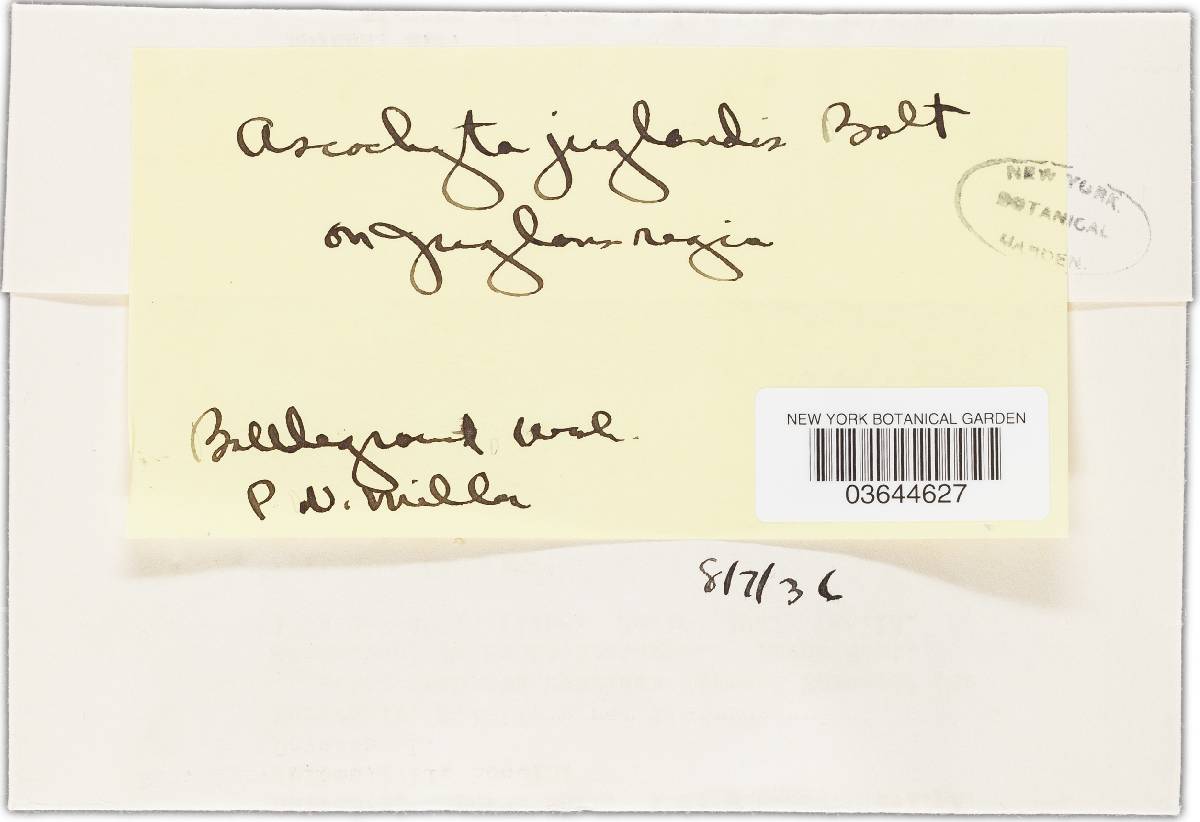 Ascochyta juglandis Bolt
on Juglans regia
NEW YORK
BOTANICAL
GARDEN.
Battleground Wash.
P. W. Miller
NEW YORK BOTANICAL GARDEN
03644627
8/7/36